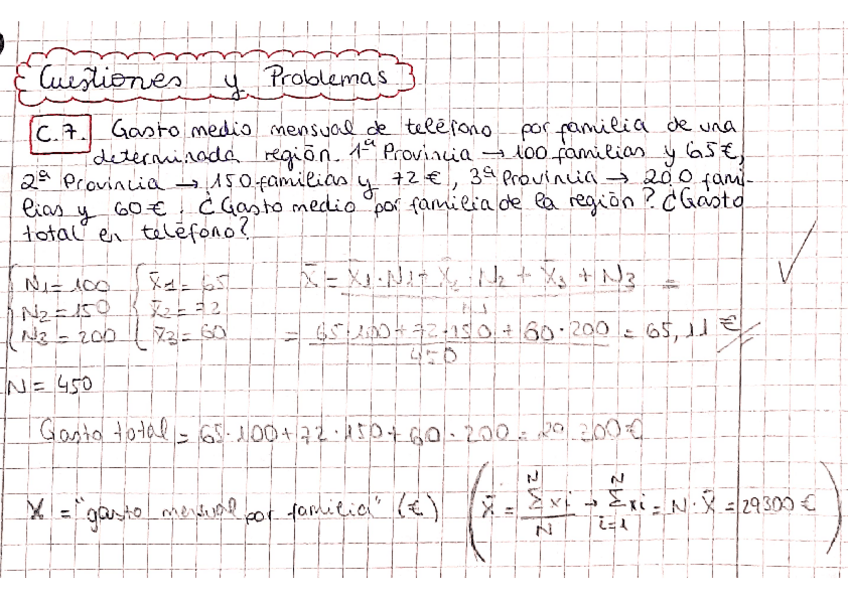 Cuestiones y Problemas
C.7. Gasto medio mensual de teléfono por familia de una
determinada región. 1ª Provincia → 100 familias y 65€,
2ª Provincia → 150 familias y 72€, 3ª Provincia → 200 fami-
lias y 60€. ¿Gasto medio por familia de la región? ¿Gasto
total en teléfono?
N1 = 100 x̄1 = 65 X̄ = x̄1·N1 + x̄2·N2 + x̄3 + N3 =
N2 = 150 x̄2 = 72
N3 = 200 x̄3 = 60 = 65·100+72·150+60·200 = 65,11 €
450
N = 450
Gasto total = 65·100+72·150+60·200 = 29.300€
X = "gasto mensual por familia" (€) (x̄ = N Σ xi / N → N Σ i=1 xi = N·x̄ = 29300 €)